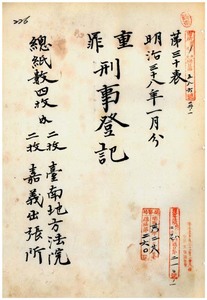 第三十表
明治三十八年一月分
重罪 刑事登記
總紙數四枚 內
二枚 臺南地方法院
二枚 嘉義出張所
226